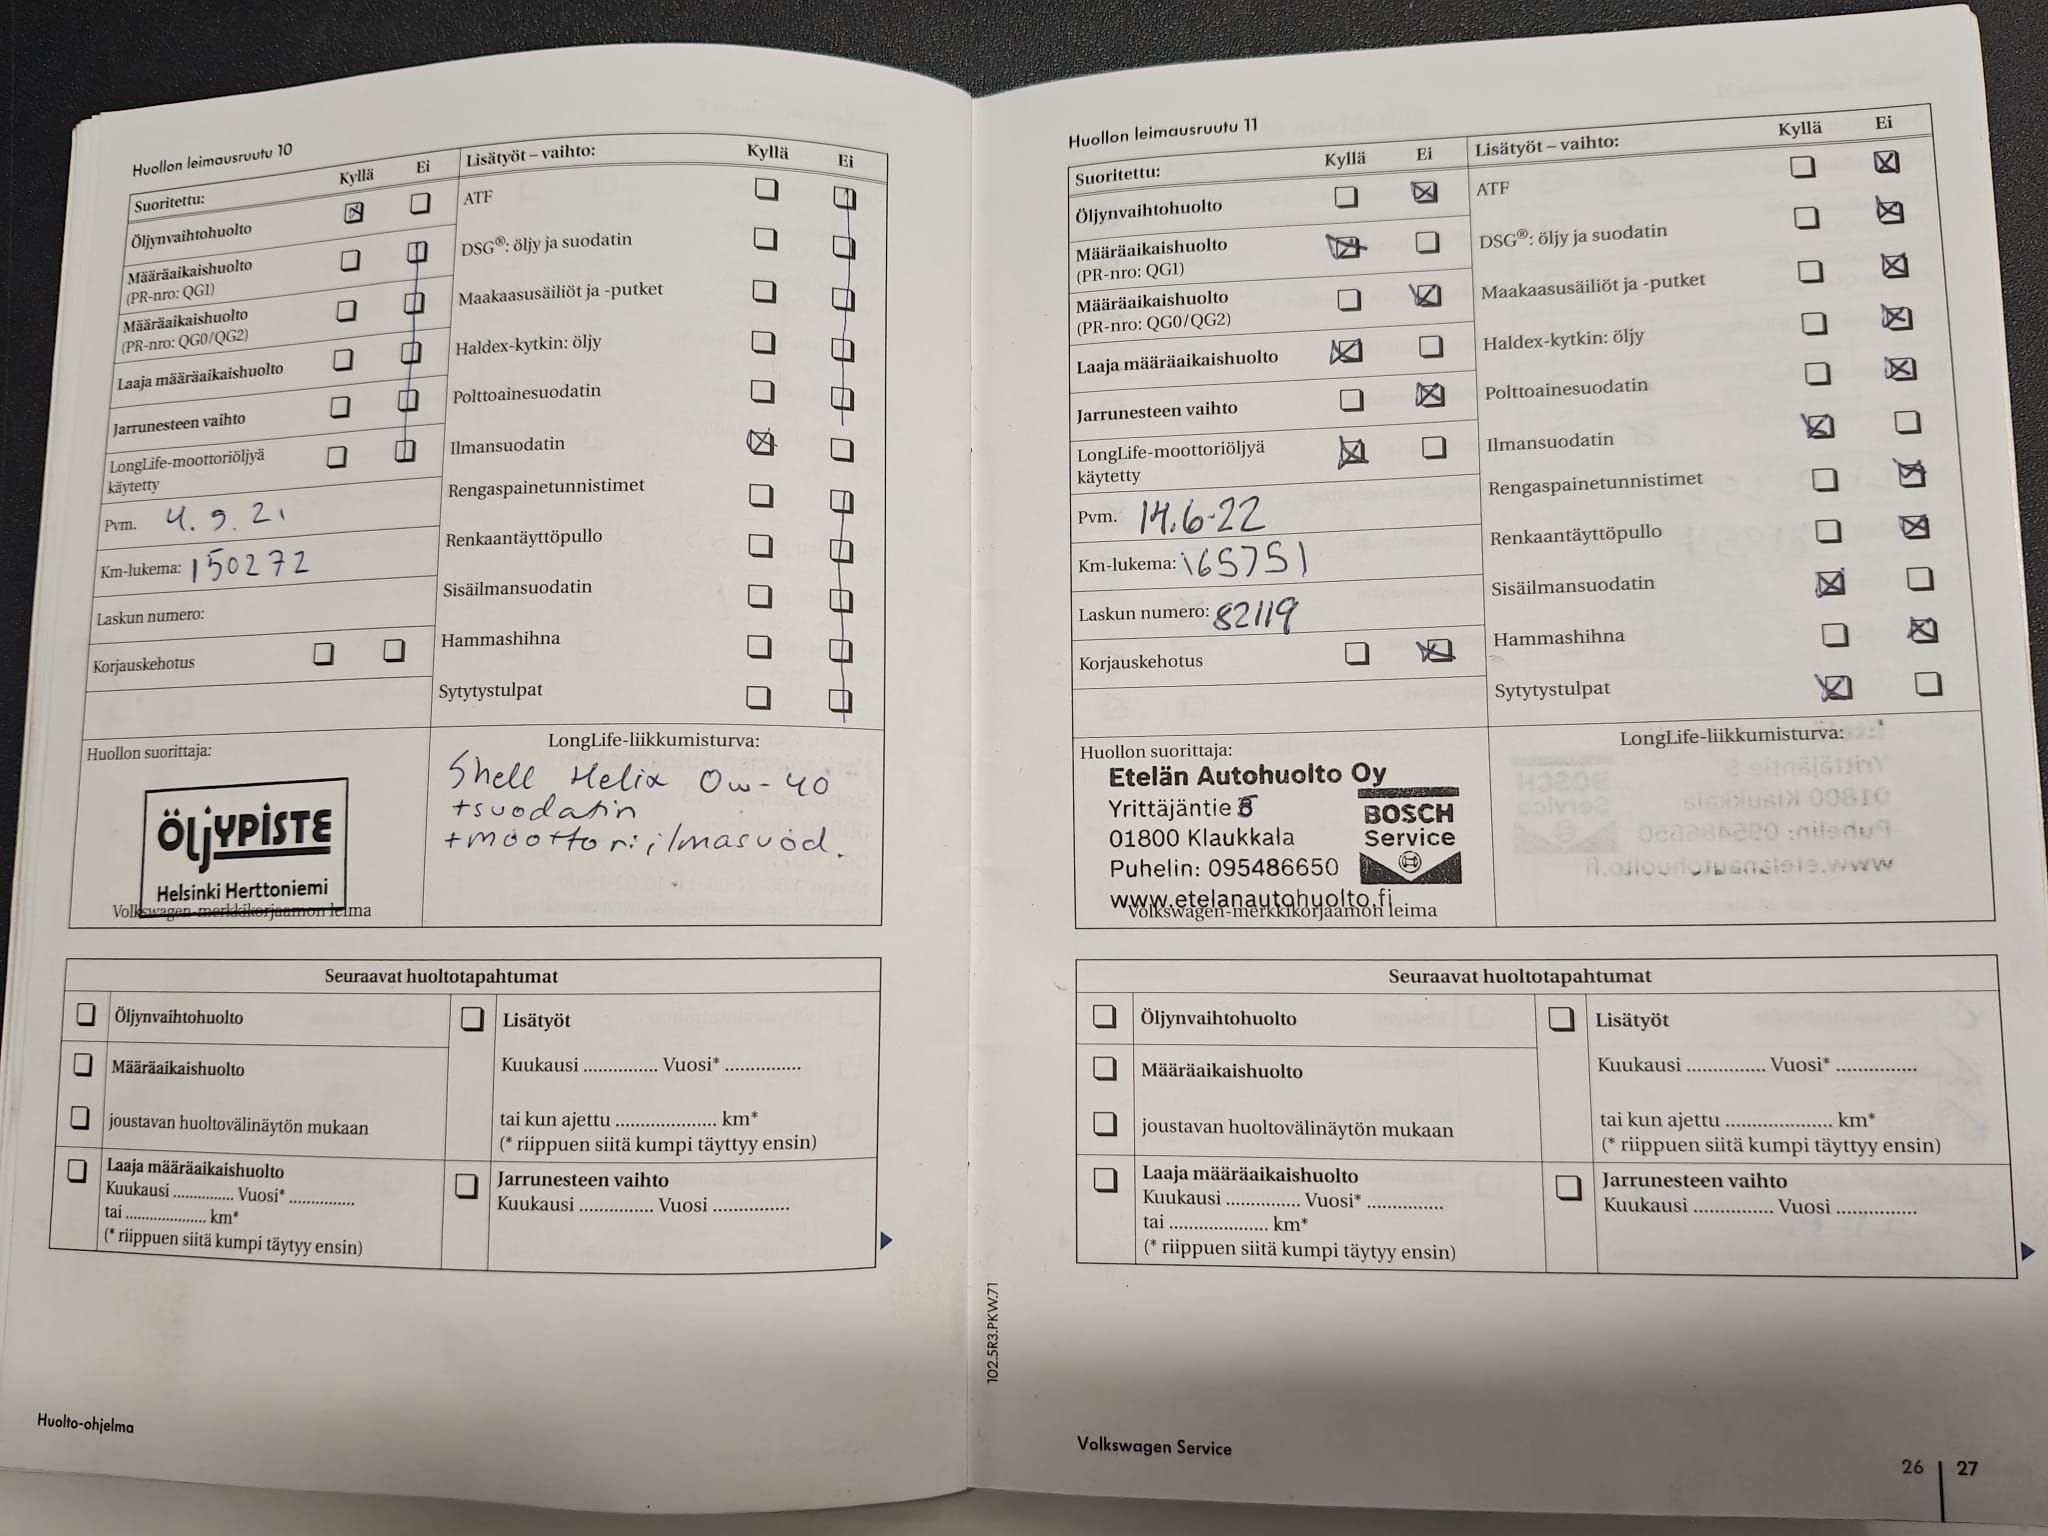 Huollon leimausruutu 10
Suoritettu: Kyllä Ei
Öljynvaihtohuolto
Määräaikaishuolto
(PR-nro: QG1)
Määräaikaishuolto
(PR-nro: QG0/QG2)
Laaja määräaikaishuolto
Jarrunesteen vaihto
LongLife-moottoriöljyä
käytetty
Pvm. 4.9.21
Km-lukema: 150272
Laskun numero:
Korjauskehotus
Lisätyöt – vaihto: Kyllä Ei
ATF
DSG®: öljy ja suodatin
Maakaasusäiliöt ja -putket
Haldex-kytkin: öljy
Polttoainesuodatin
Ilmansuodatin
Rengaspainetunnistimet
Renkaantäyttöpullo
Sisäilmansuodatin
Hammashihna
Sytytystulpat
Huollon suorittaja:
ÖljYPiSTE
Helsinki Herttoniemi
Volkswagen-merkkikorjaamon leima
LongLife-liikkumisturva:
Shell Helix 0w-40
+suodatin
+moottoriilmasuod.
Seuraavat huoltotapahtumat
Öljynvaihtohuolto
Määräaikaishuolto
joustavan huoltovälinäytön mukaan
Laaja määräaikaishuolto
Kuukausi ............... Vuosi* ................
tai .................... km*
(* riippuen siitä kumpi täytyy ensin)
Lisätyöt
Kuukausi ............... Vuosi* ...............
tai kun ajettu .................... km*
(* riippuen siitä kumpi täyttyy ensin)
Jarrunesteen vaihto
Kuukausi ............... Vuosi ...............
Huolto-ohjelma
Huollon leimausruutu 11
Suoritettu: Kyllä Ei
Öljynvaihtohuolto
Määräaikaishuolto
(PR-nro: QG1)
Määräaikaishuolto
(PR-nro: QG0/QG2)
Laaja määräaikaishuolto
Jarrunesteen vaihto
LongLife-moottoriöljyä
käytetty
Pvm. 14.6-22
Km-lukema: 165751
Laskun numero: 82119
Korjauskehotus
Lisätyöt – vaihto: Kyllä Ei
ATF
DSG®: öljy ja suodatin
Maakaasusäiliöt ja -putket
Haldex-kytkin: öljy
Polttoainesuodatin
Ilmansuodatin
Rengaspainetunnistimet
Renkaantäyttöpullo
Sisäilmansuodatin
Hammashihna
Sytytystulpat
Huollon suorittaja:
Etelän Autohuolto Oy
Yrittäjäntie
01800 Klaukkala
Puhelin: 095486650
www.etelanautohuolto.fi
BOSCH
Service
Volkswagen-merkkikorjaamon leima
LongLife-liikkumisturva:
Seuraavat huoltotapahtumat
Öljynvaihtohuolto
Määräaikaishuolto
joustavan huoltovälinäytön mukaan
Laaja määräaikaishuolto
Kuukausi ............... Vuosi* ...............
tai .................... km*
(* riippuen siitä kumpi täytyy ensin)
Lisätyöt
Kuukausi ............... Vuosi* ...............
tai kun ajettu .................... km*
(* riippuen siitä kumpi täyttyy ensin)
Jarrunesteen vaihto
Kuukausi ............... Vuosi ...............
102.5R3.PKW.71
Volkswagen Service
26 27